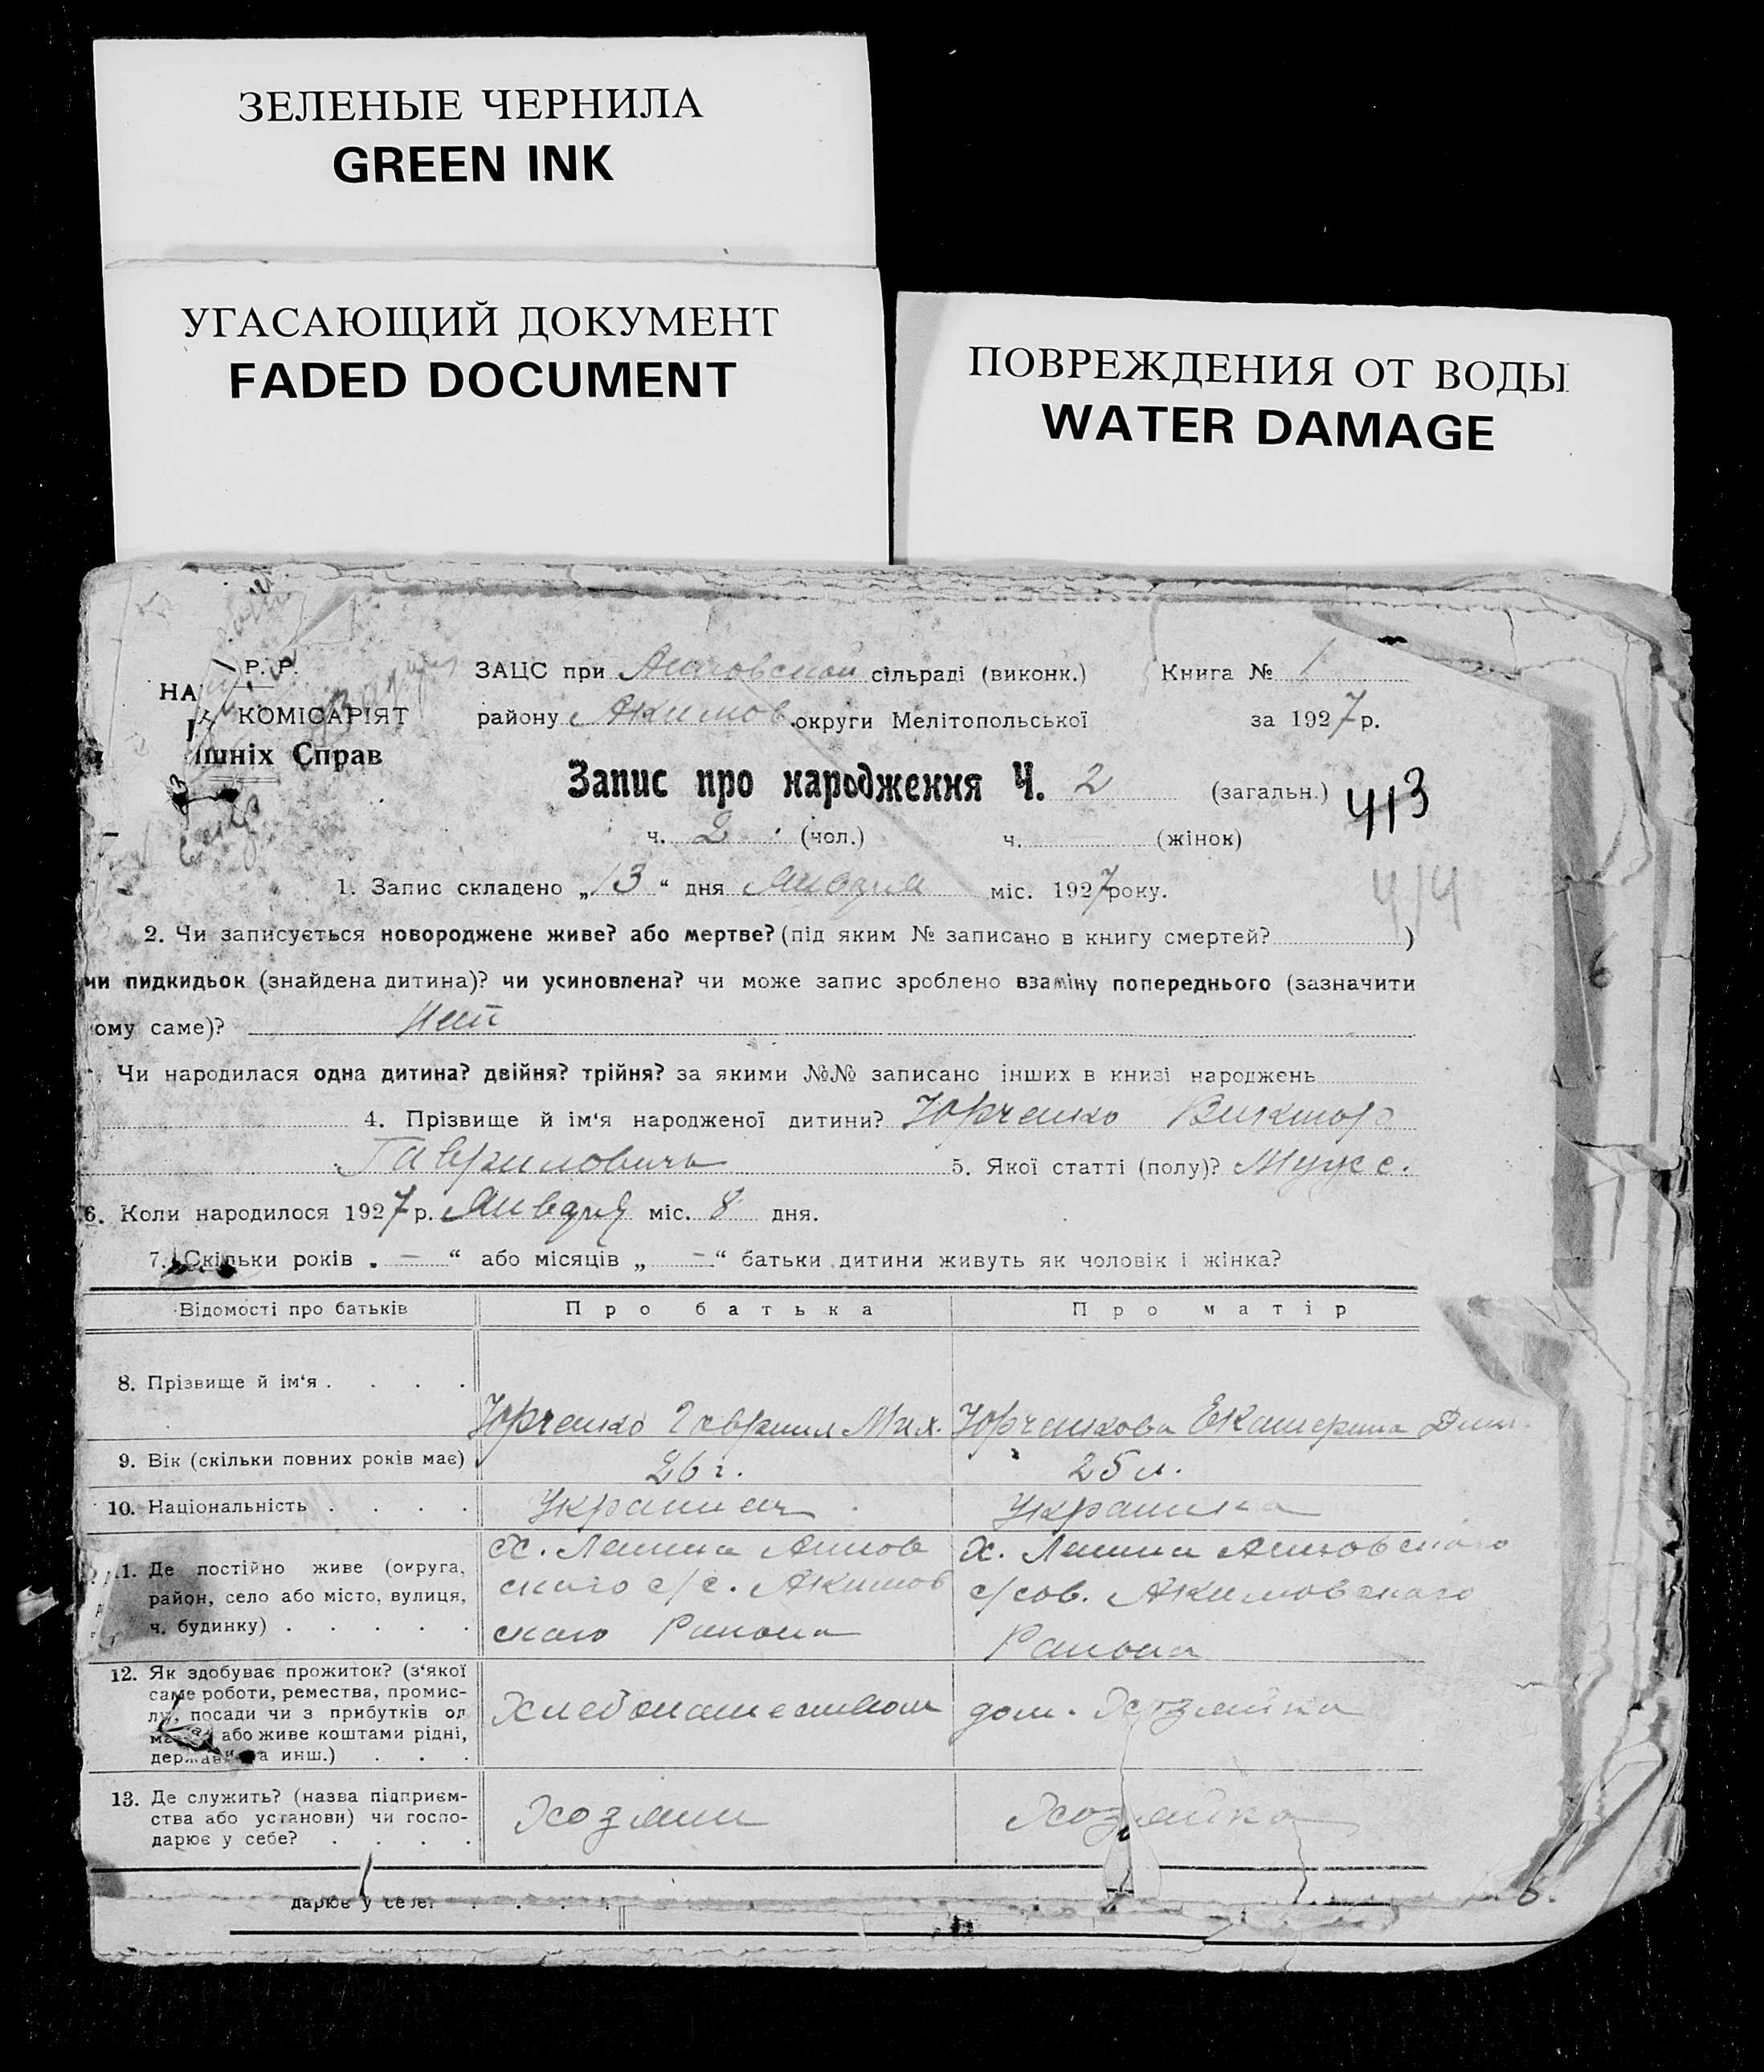 ЗЕЛЕНЫЕ ЧЕРНИЛА
GREEN INK
УГАСАЮЩИЙ ДОКУМЕНТ
FADED DOCUMENT
ПОВРЕЖДЕНИЯ ОТ ВОДЫ
WATER DAMAGE
Р. Р.
НА
КОМІСАРІЯТ
ішніх Справ
ЗАЦС при сільраді (виконк.) Книга № 1
району Акимов. округи Мелітопольської за 1927 р.
Запис про народження Ч. 2 (загальн.) 413
ч. 2 (чол.) ч. (жінок)
414
1. Запис складено „13“ дня Января міс. 1927 року.
2. Чи записується новороджене живе? або мертве? (під яким № записано в книгу смертей? )
чи пидкидьок (знайдена дитина)? чи усиновлена? чи може запис зроблено взаміну попереднього (зазначити
ому саме)? Нет
Чи народилася одна дитина? двійня? трійня? за якими №№ записано інших в книзі народжень
4. Прізвище й ім‘я народженої дитини? Юрченко Виктор
Гаврилович 5. Якої статті (полу)? Мужс.
6. Коли народилося 1927 р. Января міс. 8 дня.
7. Скільки років „ — “ або місяців „ — “ батьки дитини живуть як чоловік і жінка?
Відомості про батьків Про батька Про матір
8. Прізвище й ім‘я . . . .
Юрченко Гавриил Мих. Юрченкова Екатерина Дми.
9. Вік (скільки повних років має) 26 г. 25 л.
10. Національність . . . . Украинец Украинка
11. Де постійно живе (округа, район, село або місто, вулиця, ч. будинку) . . . . .
х. Ленина
ского с/с. Акимов
ского Района
х. Ленина
с/сов. Акимовского
Района
12. Як здобуває прожиток? (з‘якої
саме роботи, ремества, промис-
лу, посади чи з прибутків од
або живе коштами рідні,
держави та инш.) . . .
Хлебопашеством дом. Хозяйка
13. Де служить? (назва підприєм-
ства або установи) чи госпо-
дарює у себе? . . . .
Хозяин Хозяйка
дарює у себе? . . . .